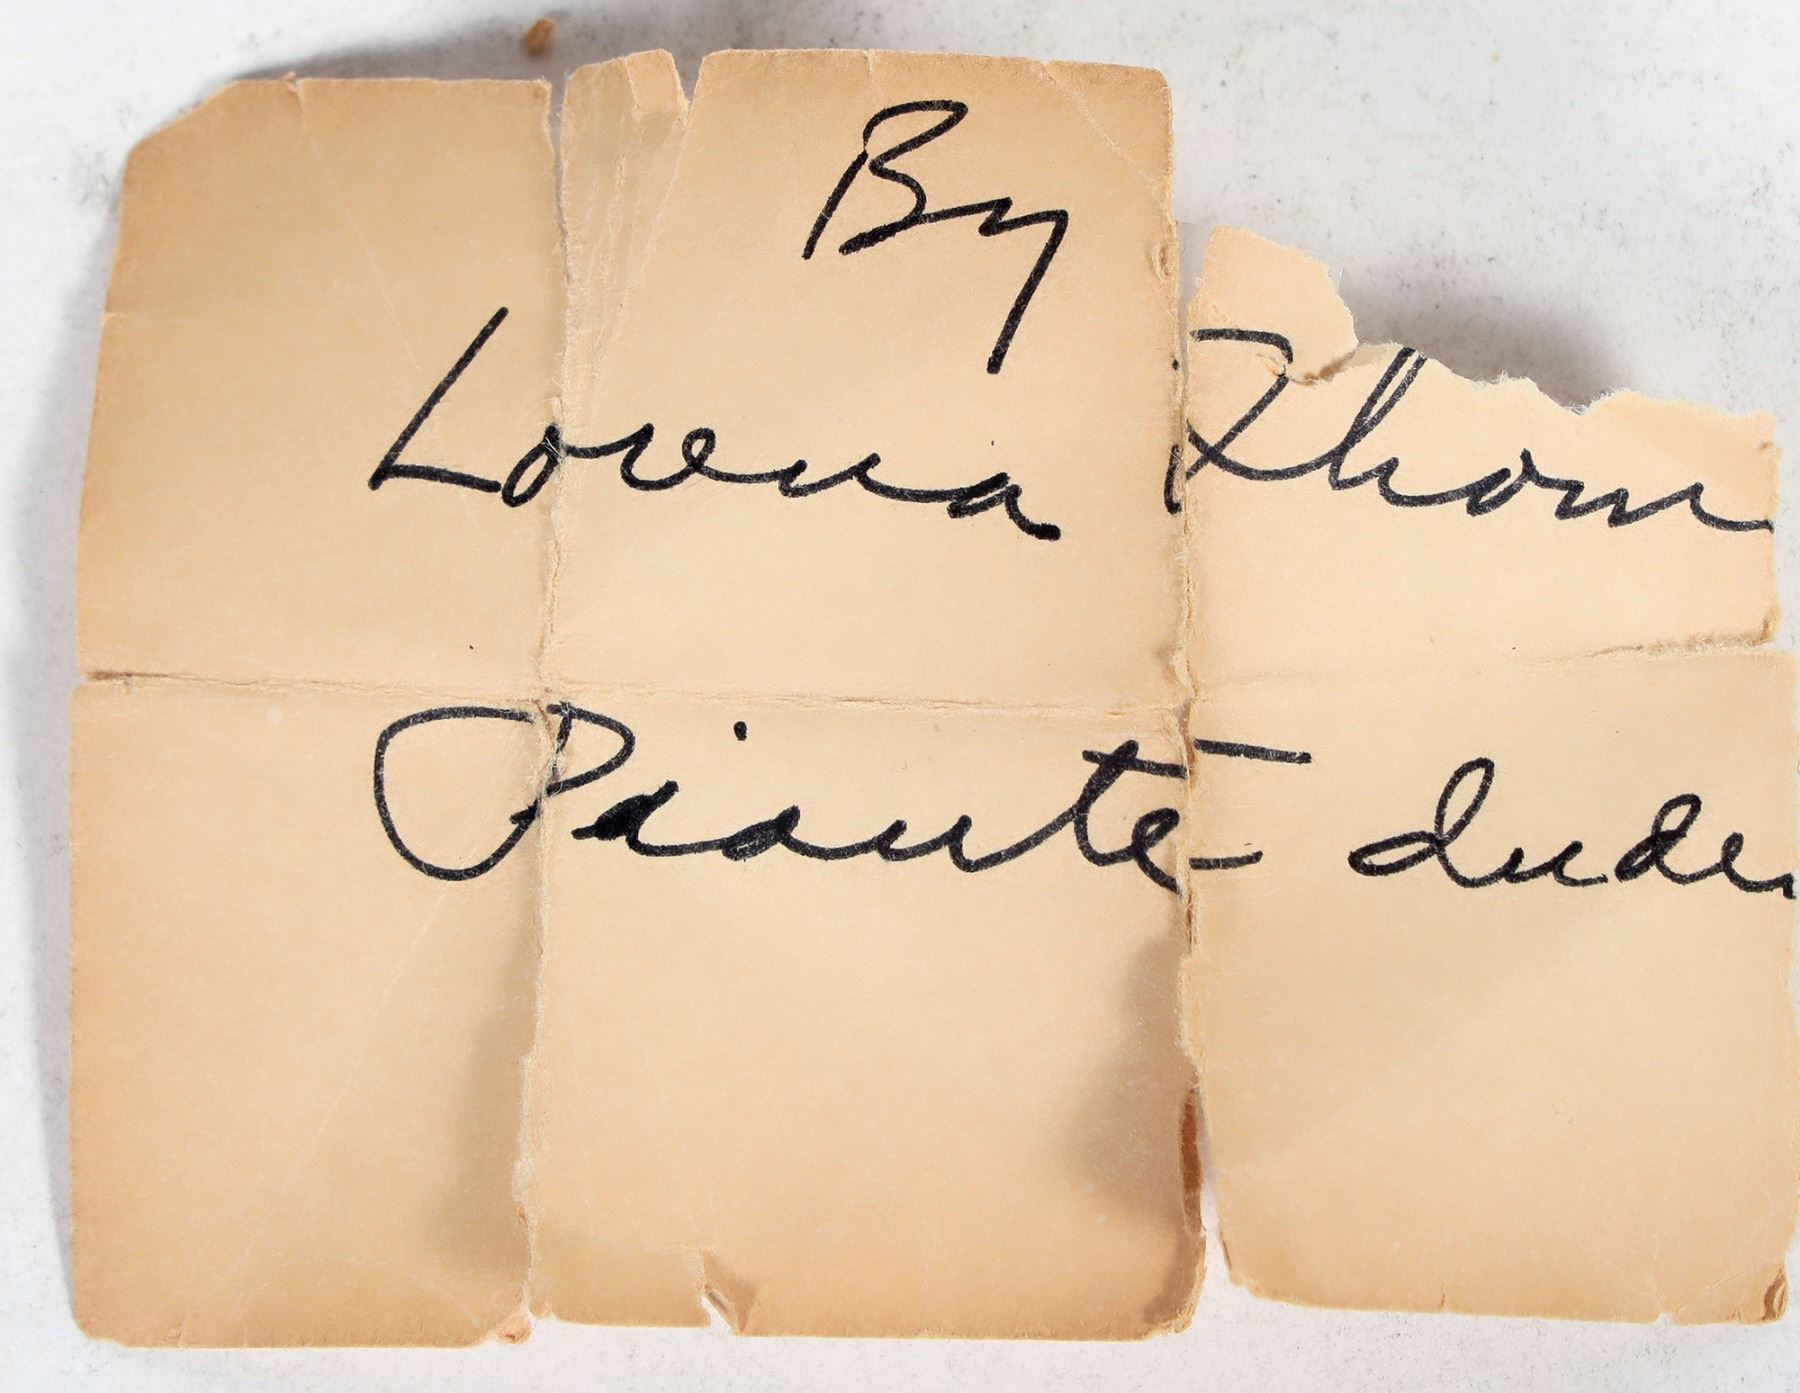 By
Lorena Thom
Piaute Indi